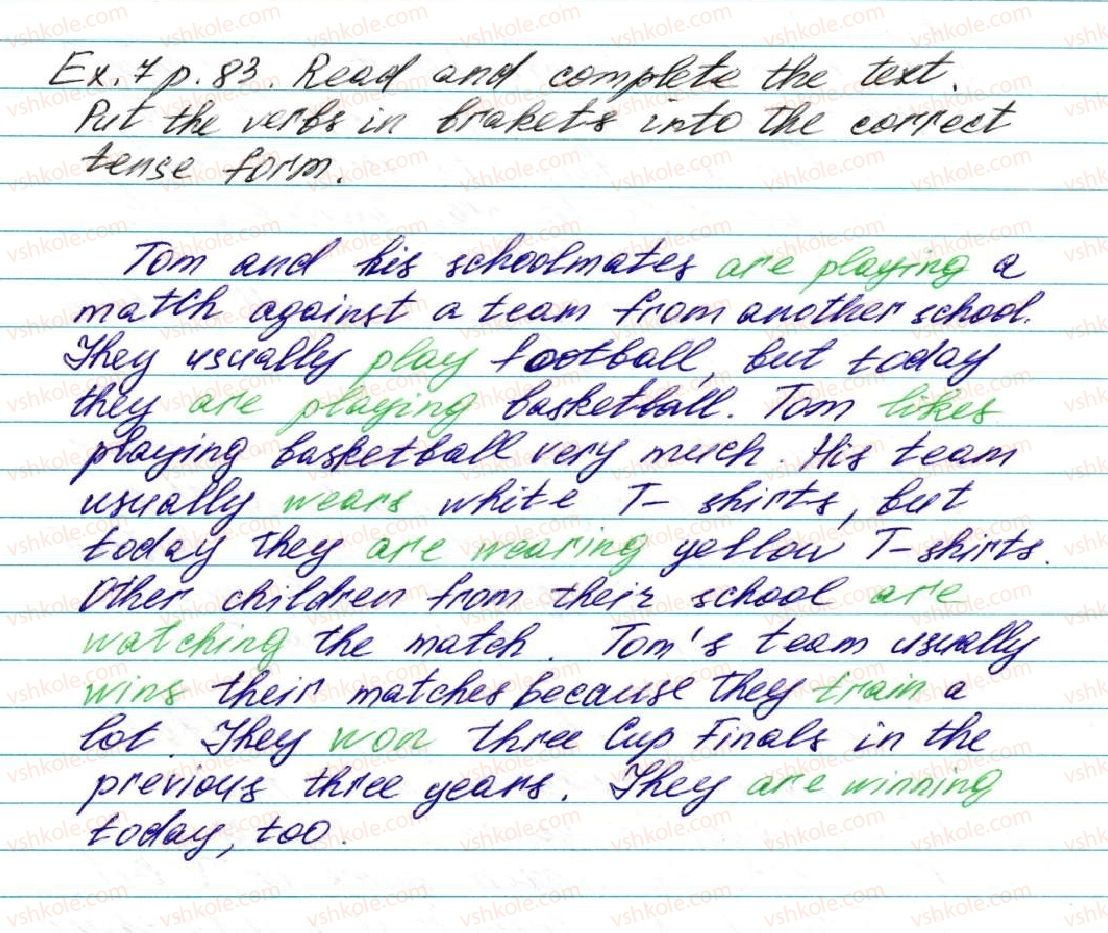 Ex. 7 p. 83. Read and complete the text.
Put the verbs in brakets into the correct
tense form.
Tom and his schoolmates are playing a
match against a team from another school.
They usually play football, but today
they are playing basketball. Tom likes
playing basketball very much. His team
usually wears white T- shirts, but
today they are wearing yellow T-shirts.
Other children from their school are
watching the match. Tom's team usually
wins their matches because they train a
lot. They won three Cup Finals in the
previous three years. They are winning
today, too.
vshkole.com